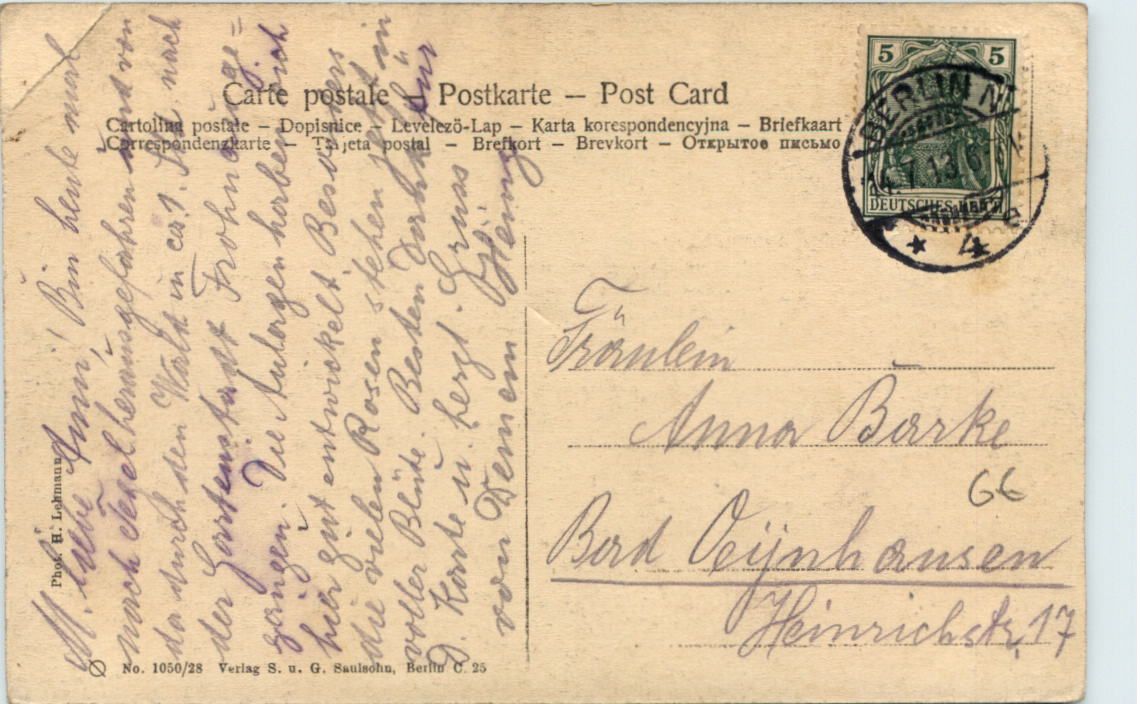 Carte postale – Postkarte – Post Card
Cartolina postale – Dopisnice – Levelező-Lap – Karta korespondencyjna – Briefkaart
Correspondenzkarte – Tarjeta postal – Brefkort – Brevkort – Открытое письмо
5 5
DEUTSCHES REICH
BERLIN N
14.7.13.6
* 4 * e
M. liebe Anni! Bin heute mal
nach Tegel herausgefahren und von
da durch den Wald in ca 1. Std. nach
der Gartenstadt Frohnau ge=
gangen. Die Anlagen haben sich
hier gut entwickelt. Besonders
die vielen Rosen stehen jetzt in
voller Blüte. Besten Dank für
D. Karte u. herzl. Gruss
von Deinem Heinz
Fräulein
Anna Barke
66
Bad Oeynhausen
Heinrichstr. 17
Phot. H. Lehmann
No. 1050/28 Verlag S. u. G. Saulsohn, Berlin C. 25